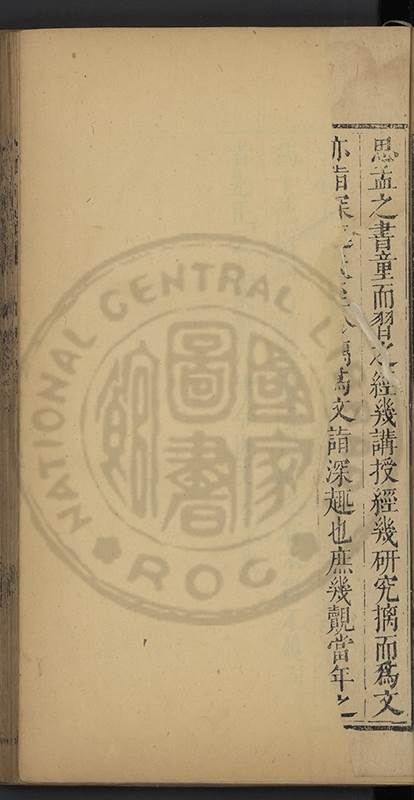 思孟之書童而習之經幾講授經幾研究摛而爲文
亦旨深 爲文詣深趣也庶幾覩當年之
NATIONAL CENTRAL LI
國家圖書
ROC